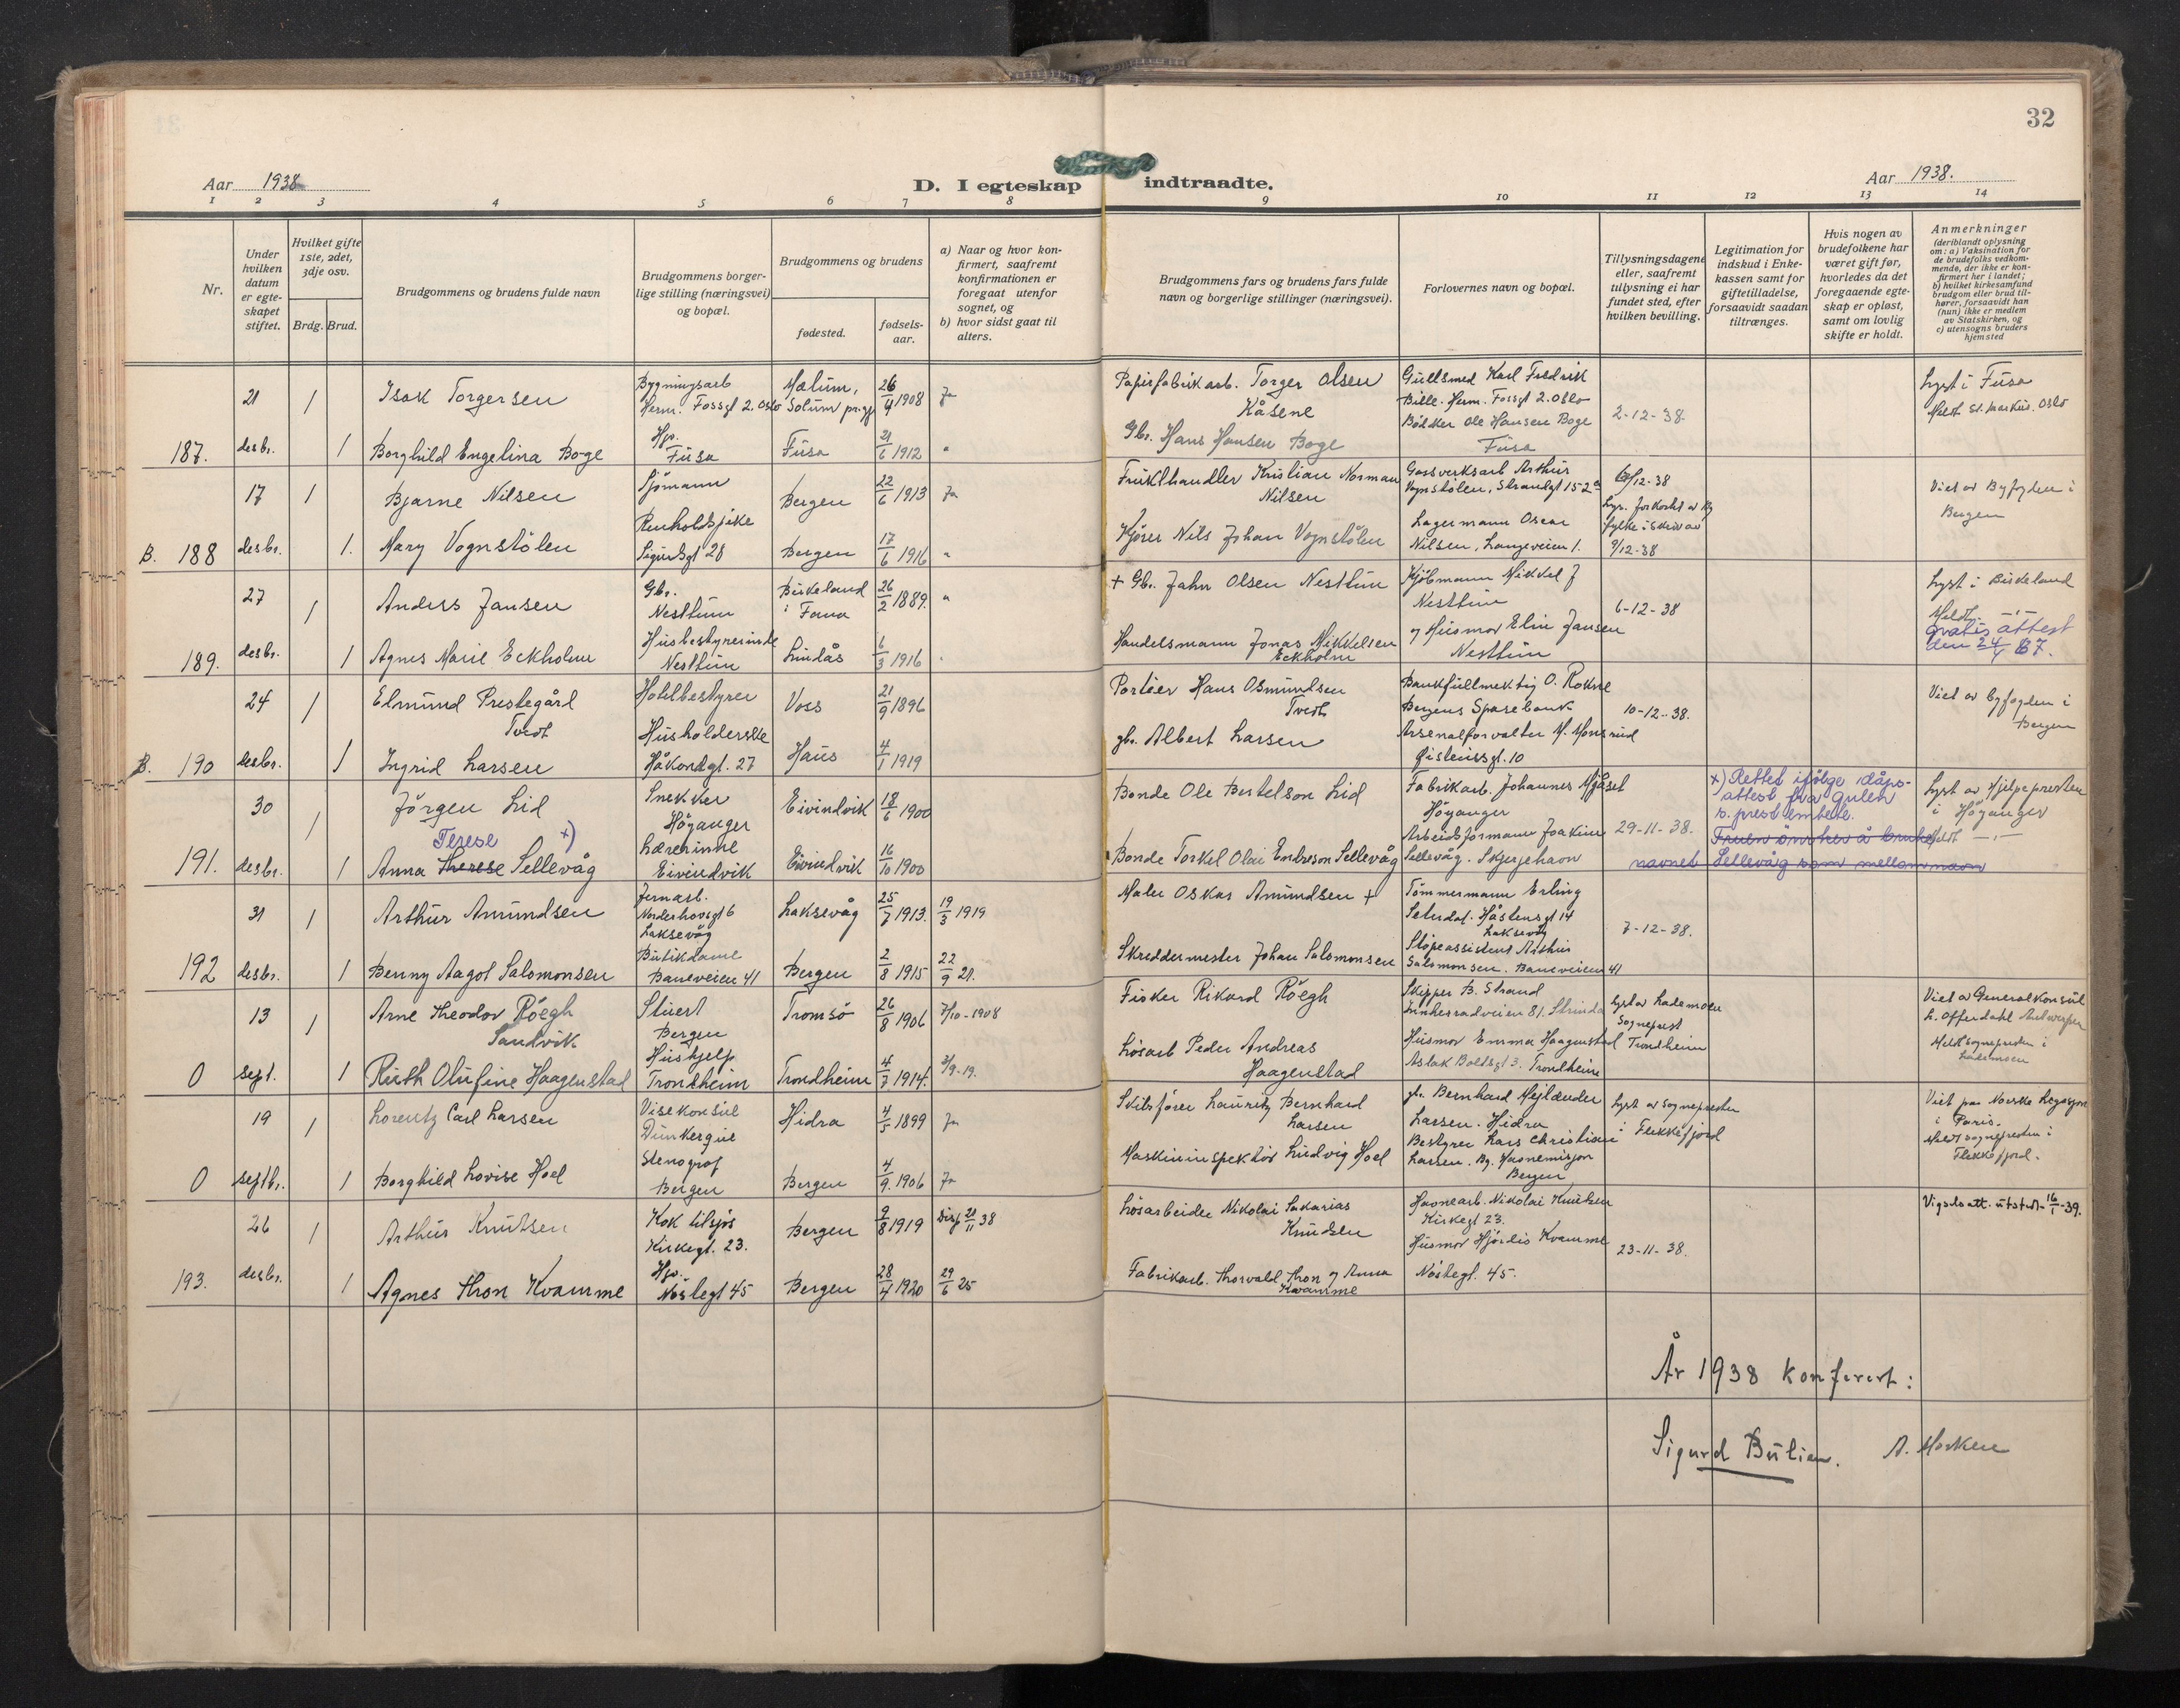 32
Aar 1938
D. I egteskap indtraadte.
Aar 1938.
1 2 3 4 5 6 7 8 9 10 11 12 13 14
Nr.
Under hvilken datum er egteskapet stiftet.
Hvilket gifte 1ste, 2det, 3dje osv.
Brdg. Brud.
Brudgommens og brudens fulde navn
Brudgommens borgerlige stilling (næringsvei) og bopæl.
Brudgommens og brudens
fødested.
fødselsaar.
a) Naar og hvor konfirmert, saafremt konfirmationen er foregaat utenfor sognet, og
b) hvor sidst gaat til alters.
Brudgommens fars og brudens fars fulde navn og borgerlige stillinger (næringsvei).
Forlovernes navn og bopæl.
Tillysningsdagene eller, saafremt tillysning ei har fundet sted, efter hvilken bevilling.
Legitimation for indskud i Enkekassen samt for giftetilladelse, forsaavidt saadan tiltrænges.
Hvis nogen av brudefolkene har været gift før, hvorledes da det foregaaende egteskap er opløst, samt om lovlig skifte er holdt.
Anmerkninger
(deriblandt oplysning om: a) Vaksination for de brudefolks vedkommende, der ikke er konfirmert her i landet; b) hvilket kirkesamfund brudgom eller brud tilhører, forsaavidt han (hun) ikke er medlem av Statskirken, og c) utensogns bruders hjemsted
21 1 Isak Torgersen Bygningsarb Herm. Fossgt 2. Oslo Mælum, Solum pr.gj 26/4 1908 Ja Papirfabrikarb. Torger Olsen Kåsene Gullsmed Karl Fredrik Bille. Herm. Fossgt 2. Oslo 2-12-38 Lyst i Fusa Meldt St. Markus. Oslo
187. desbr. 1 Borghild Engelina Boge Hp. Fusa Fusa 21/6 1912 " Gbr. Hans Hansen Boge Bødker Ole Hansen Boge Fusa
17 1 Bjarne Nilsen Sjømann Bergen 22/6 1913 Ja Frukthandler Kristian Norman Nilsen Gassverksarb Arthur Vognstølen, Strandgt 152 a /12-38 Viet av Byfogden i Bergen
B. 188 desbr. 1. Mary Vognstølen Renholdspike Sigurdsgt 28 Bergen 17/6 1916 " Kjører Nils Johan Vognstølen Lagermann Oscar Nilsen, Langeveien 1. 9/12-38
27 1 Anders Jansen Gbr. Nesttun Birkeland i Fana 26/2 1889. " + Gbr. Jahn Olsen Nesttun Kjøbmann Mikkel J Nesttun 6-12-38 Lyst i Birkeland Meldt —"—
189. desbr. 1 Agnes Marie Eckholm Husbestyrerinde Nesttun Lindås 6/3 1916 " Handelsmann Jonas Mikkelsen Eckholm og Husmor Elin Jansen Nesttun Gratis attest den 24/4 67.
24 1 Elmund Prestegård Tvedt Hotelbestyrer Voss 21/9 1896 Portier Hans Osmundsen Tvedt Bankfullmektig O. Rokne Bergens Sparebank 10-12-38. Viet av byfogden i Bergen
B. 190 desbr. 1 Ingrid Larsen Husholderske Håkonsgt. 27 Haus 4/1 1919 gbr. Albert Larsen Arsenalforvalter M. Monsrud Øisteinsgt. 10
30 1 Jörgen Lid Snekker Höyanger Eivindvik 18/6 1900 Bonde Ole Bertelson Lid Fabrikarb. Johannes Mjåset Höyanger 29-11-38. x) Rettet ifölge dåpsattest fra Gulen s. prestembete. Lyst av Hjelpepresten i Höyanger
191. desbr. 1 Anna Therese Terese x) Sellevåg Lærerinne Eivindvik Eivindvik 16/10 1900 Bonde Torkel Olai Endreson Sellevåg Arbeidsformann Joakim Sellevåg. Skjerjehavn Fruen önsker å bruke navnet Sellevåg som mellomnavn
31 1 Arthur Amundsen Jernarb. Norderhovsgt 6 Laksevåg Laksevåg 25/7 1913. 19/3 1919 Maler Oskar Amundsen + Tömmermann Erling Seterdal. Håsteinsgt 14 Laksevåg 7-12-38.
192 desbr. 1 Benny Aagot Salomonsen Butikdame Baneveien 41 Bergen 2/8 1915 22/9 21. Skreddermester Johan Salomonsen Støpeassistent Arthur Salomonsen. Baneveien 41
13 1 Arne Theodor Röegh Sandvik Stuert Bergen Tromsö 26/8 1906 7/10-1908 Fisker Rikard Röegh Skipper B. Strand Innherredveien 81. Strinda Lyst av Lademoen Sogneprest Trondheim Viet av Generalkonsul L. Offerdahl Antwerpen Meldt Sognepresten i Lademoen
0 sept. 1 Ruth Olufine Haagenstad Hushjelp Trondheim Trondheim 4/7 1914. 3/9-19. Løsarb Peder Andreas Haagenstad Husmor Emma Haagenstad Aslak Boltsgt 3. Trondheim
19 1 Lorentz Carl Larsen Visekonsul Dunkerque Hidra 4/5 1899 Ja Skibsfører Lauritz Bernhard Larsen gb. Bernhard Mejlænder Larsen. Hidra Lyst av Sognepresten i Flekkefjord Viet paa Norske Legasjon i Paris. Meldt sognepresten i Flekkefjord.
0 septbr. 1 Borghild Lovise Hoel Stenograf Bergen Bergen 4/9. 1906 Ja Maskininspektör Ludvig Hoel Bestyrer Lars Christian Larsen. Bg. Havnemisjon Bergen
26 1 Arthur Knutsen Kok tilsjøs Kirkegt. 23. Bergen 9/8 1919 Disp 21/11 38 Løsarbeider Nikolai Sakarias Knudsen Havnearb. Nikolai Knutsen Kirkegt 23. 23-11-38. Vigselsatt. utstedt 16/1-39.
193. desbr. 1 Agnes Thron Kvamme Hp. Nöstegt 45 Bergen 28/4 1920 29/6 25 Fabrikarb. Thorvald Thron og Anna Kvamme Husmor Hjördis Kvamme Nöstegt. 45.
År 1938 konferert:
Sigurd Bülien. A. Morken